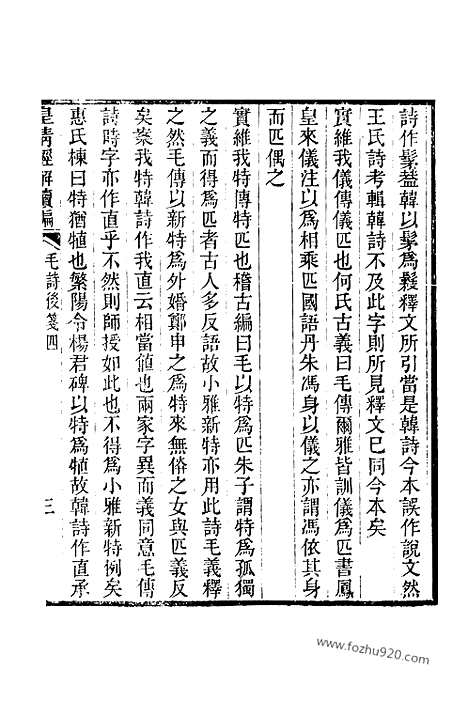 詩作髳葢韓以髳爲鬏釋文所引當是韓詩今本誤作說文然
王氏詩考輯韓詩不及此字則所見釋文已同今本矣
實維我儀傳儀匹也何氏古義曰毛傳爾雅皆訓儀爲匹書鳳
皇來儀注以爲相乘匹國語丹朱馮身以儀之亦謂馮依其身
而匹偶之
實維我特傳特匹也稽古編曰毛以特爲匹朱子謂特爲孤獨
之義而得爲匹者古人多反語故小雅新特亦用此詩毛義釋
之然毛傳以新特爲外婚鄭申之爲特來無俗之女與匹義反
矣案我特韓詩作我直云相當値也兩家字異而義同意毛傳
詩時字亦作直乎不然則師授如此也不得爲小雅新特例矣
惠氏棟曰特猶犆也繁陽令楊君碑以特爲犆故韓詩作直承
皇清經解續編 毛詩後箋四 三
www.fozhu920.com